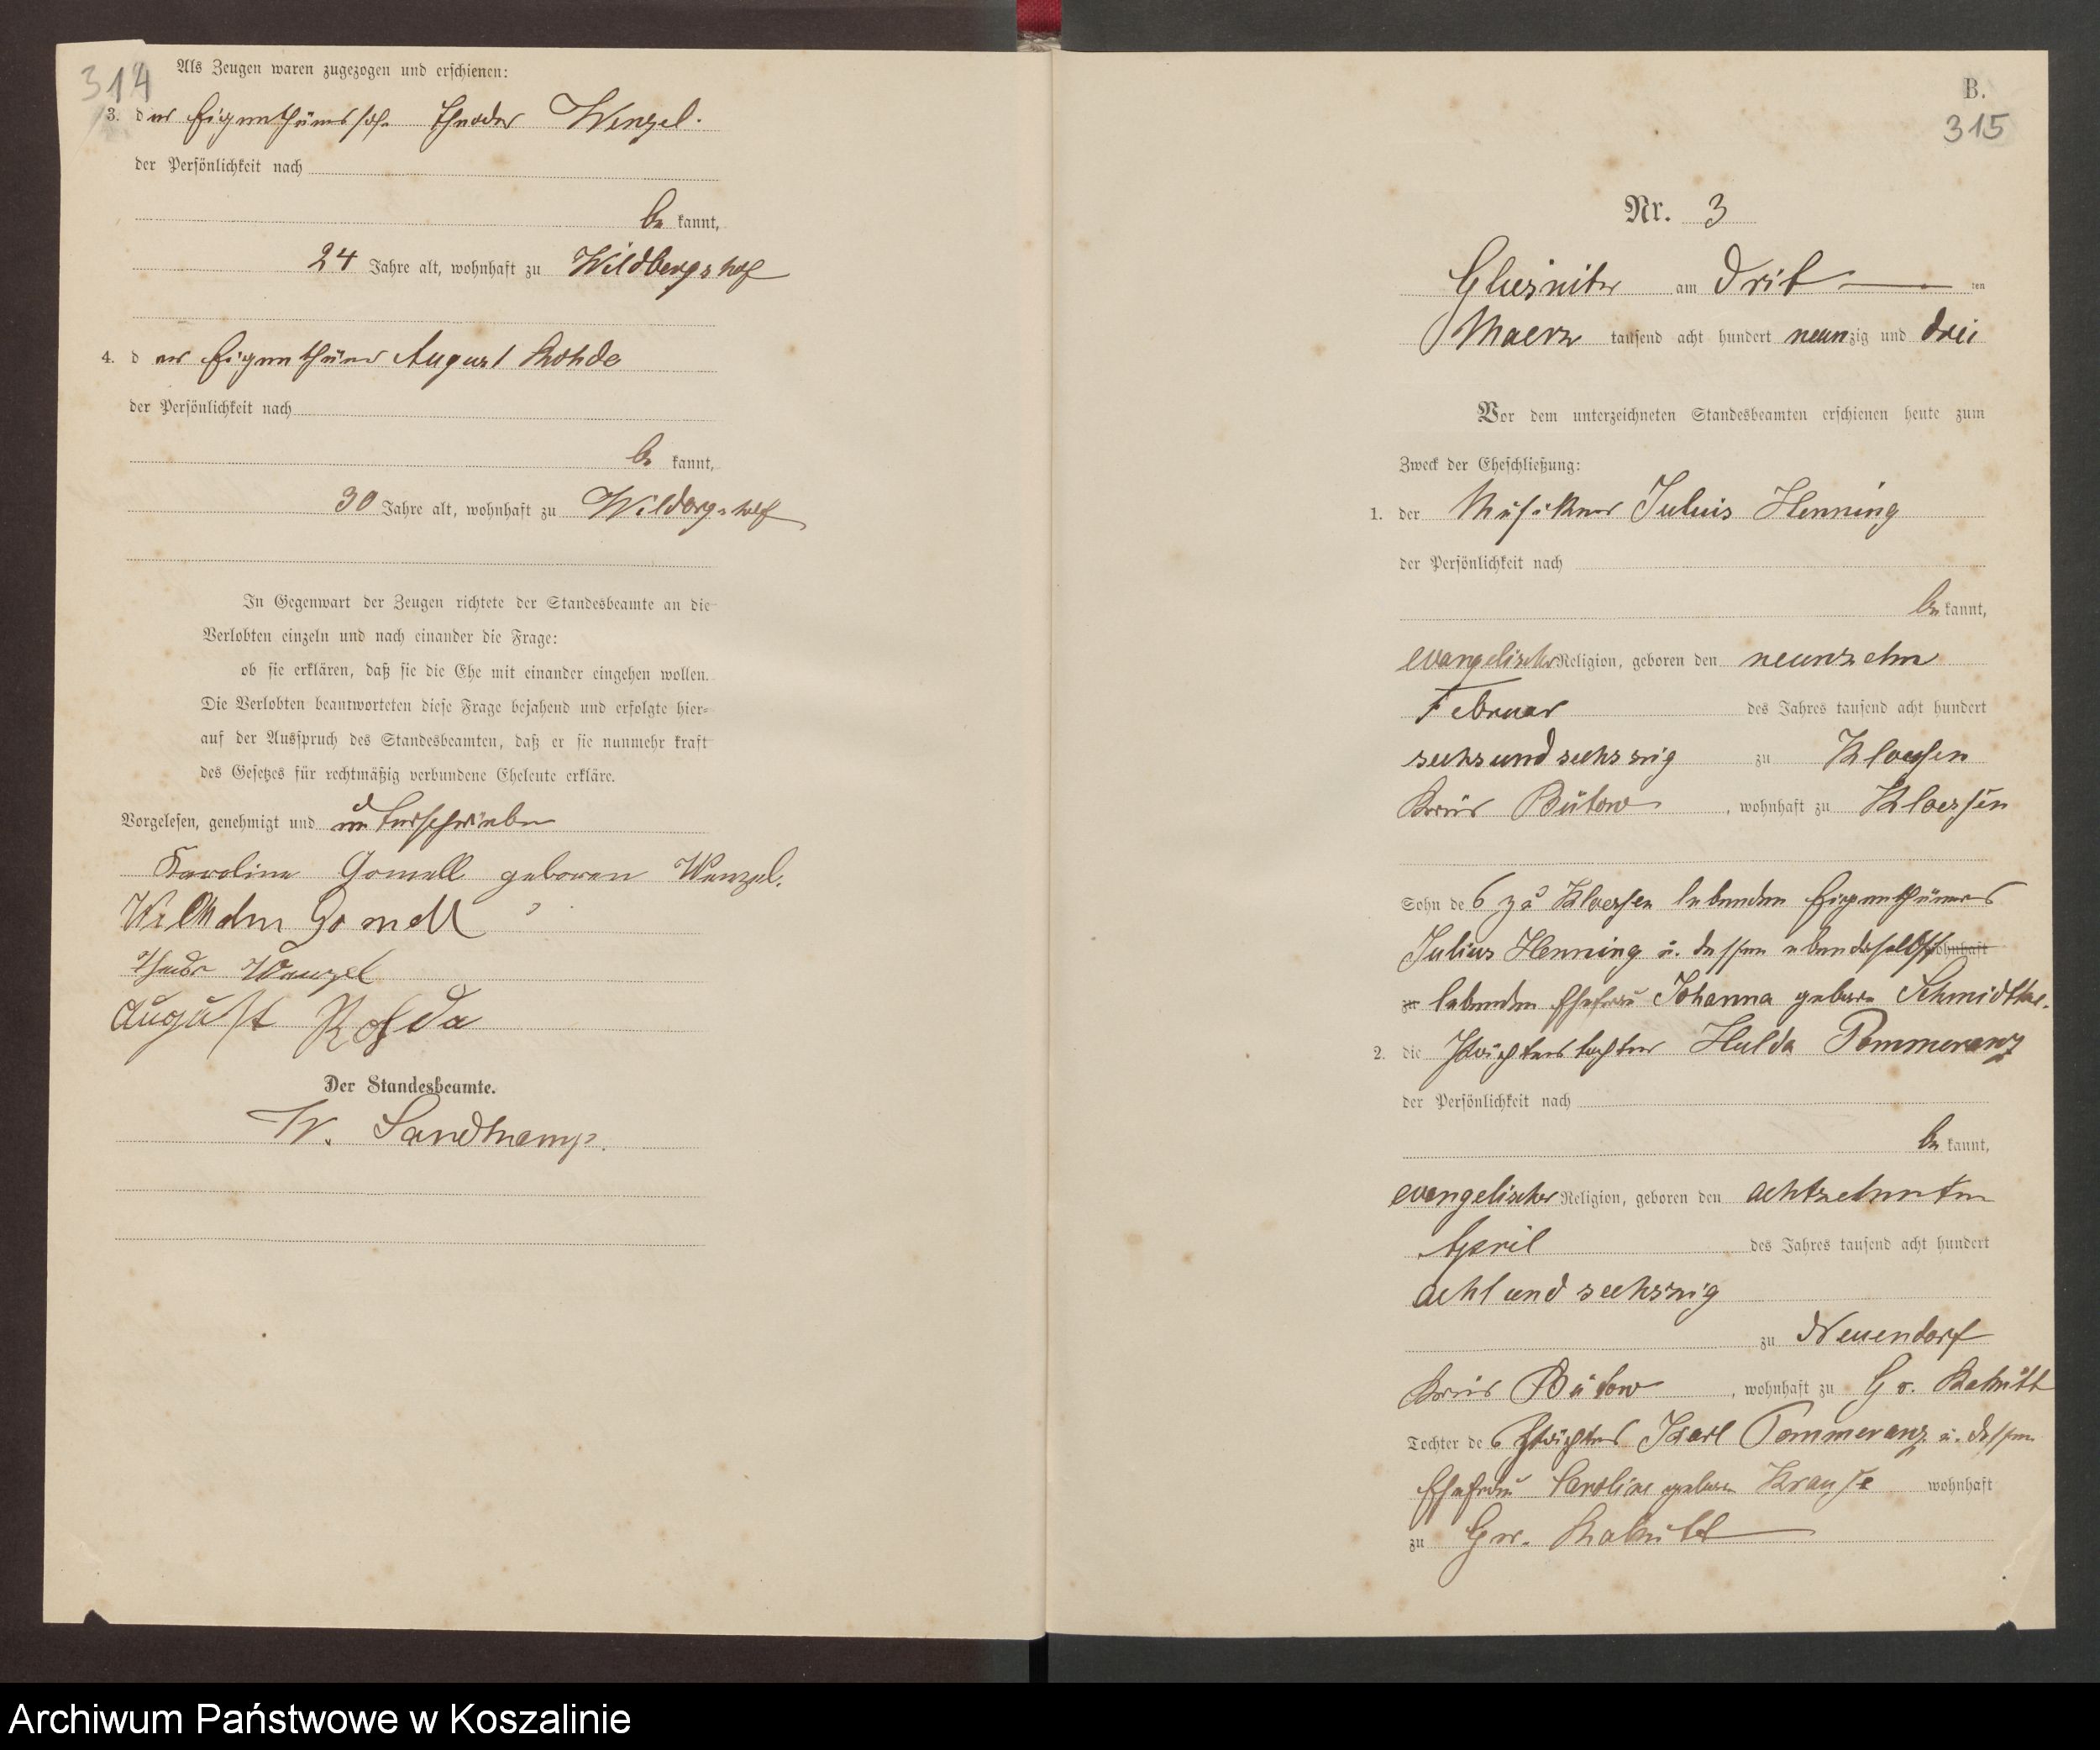 314
Als Zeugen waren zugezogen und erschienen:
3. der Eigenthümersohn Theodor Wenzel.
der Persönlichkeit nach
be kannt,
24 Jahre alt, wohnhaft zu Wildbergshof
4. d er Eigenthümer August Rohde
der Persönlichkeit nach
be kannt,
30 Jahre alt, wohnhaft zu
In Gegenwart der Zeugen richtete der Standesbeamte an die
Verlobten einzeln und nach einander die Frage:
ob sie erklären, daß sie die Ehe mit einander eingehen wollen.
Die Verlobten beantworteten diese Frage bejahend und erfolgte hier-
auf der Ausspruch des Standesbeamten, daß er sie nunmehr kraft
des Gesetzes für rechtmäßig verbundene Eheleute erkläre.
Vorgelesen, genehmigt und unterschrieben
Karoline Gomell geboren Wenzel.
Wilhelm Gomell
Wenzel
August Rohde
Der Standesbeamte.
W. Sandkamp.
B.
315
Nr. 3
am Drit ten
Maerz tausend acht hundert neunzig und drei
Vor dem unterzeichneten Standesbeamten erschienen heute zum
Zweck der Eheschließung:
1. der Musiker Julius Henning
der Persönlichkeit nach
be kannt,
evangelischer Religion, geboren den neunzehn
Februar des Jahres tausend acht hundert
sechsundsechszig zu Kloessen
Kreis Bütow, wohnhaft zu Kloessen
Sohn des zu Kloessen lebenden Eigenthümers
Julius Henning u. dessen ebendaselbst wohnhaft
zu lebenden Ehefrau Johanna geboren Schmidtke.
2. die Hulda Pommeranz
der Persönlichkeit nach
be kannt,
evangelischer Religion, geboren den achtzehnten
April des Jahres tausend acht hundert
acht und sechszig
zu Neuendorf
Kreis Bütow, wohnhaft zu Gr.
Tochter des Karl Pommeranz u. dessen
Ehefrau Caroline geboren Krause wohnhaft
zu Gr.
Archiwum Państwowe w Koszalinie